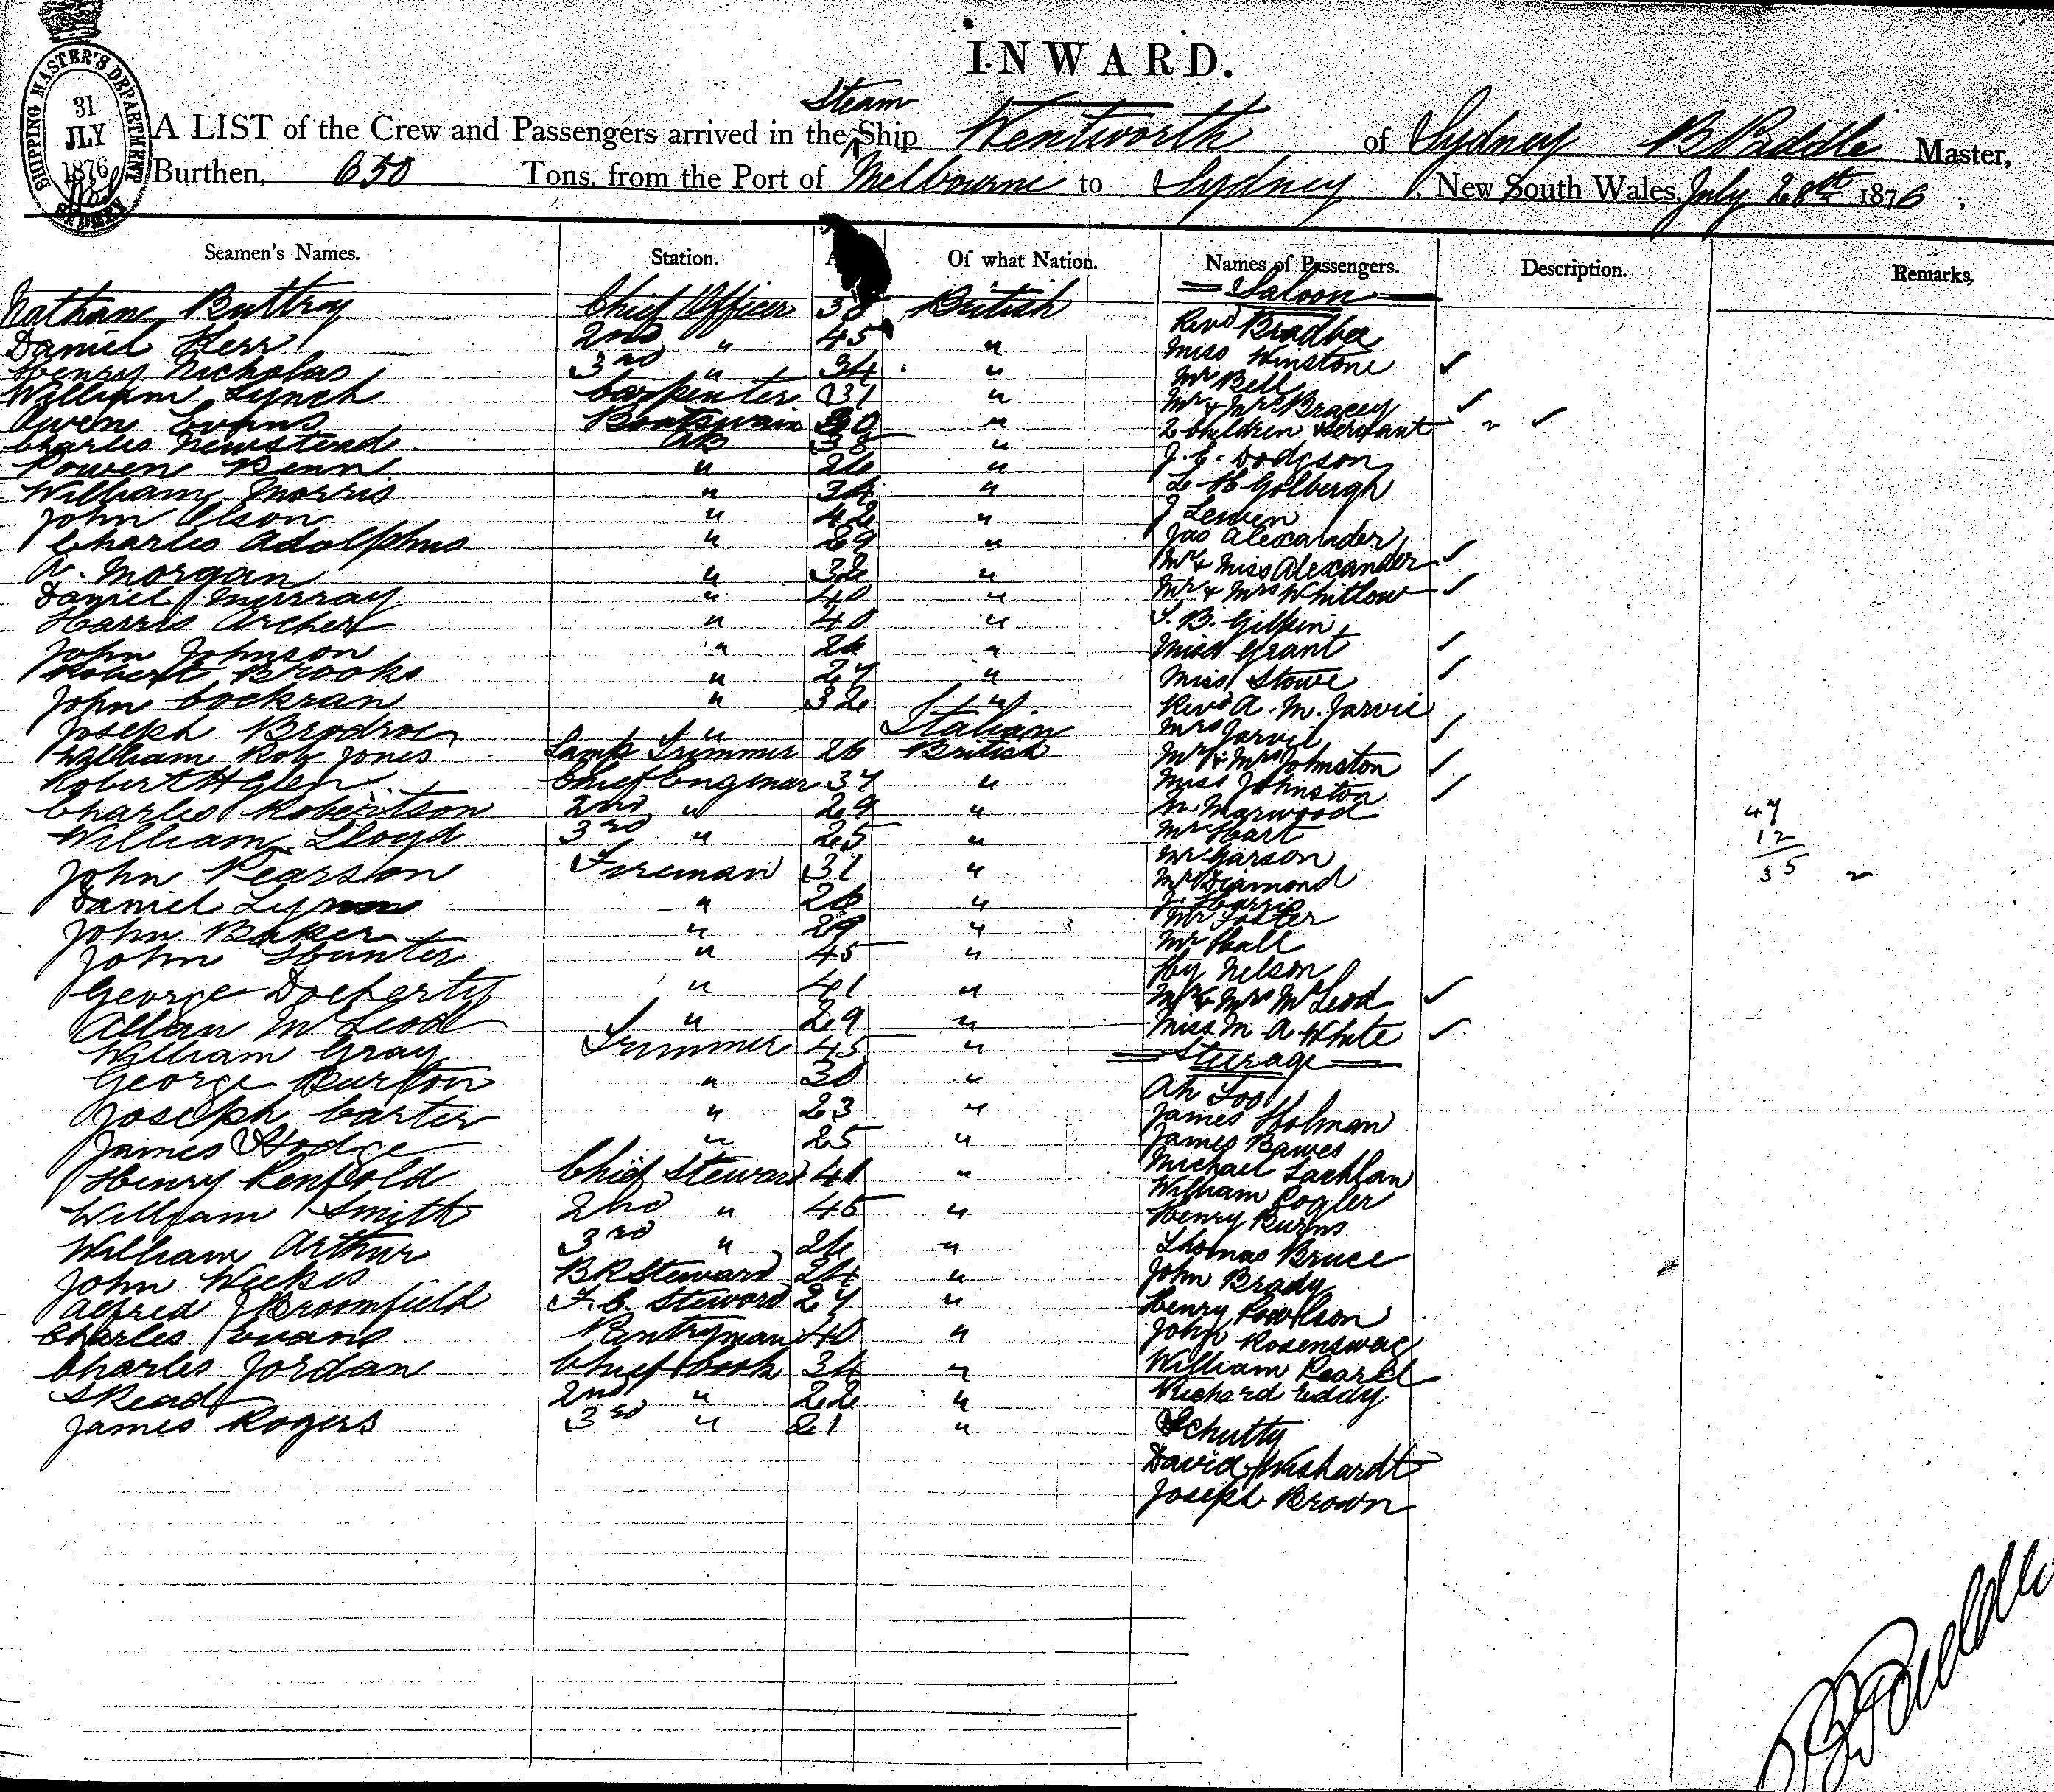 INWARD.
SHIPPING MASTER'S DEPARTMENT
31
JLY
1876
SYDNEY
Steam
A LIST of the Crew and Passengers arrived in the Ship Wentworth of Sydney B Paddle Master,
Burthen, 650 Tons, from the Port of Melbourne to Sydney, New South Wales, July 28th 1876,
Seamen's Names. Station. Of what Nation. Names of Passengers. Description. Remarks,
= Saloon =
Nathan Buttray Chief Officer 38 British Revd Bradbee
Daniel Kerr 2nd " 45 " Miss Winstone ✓
Henry Nicholas 3rd " 34 " Mr Bell
William Lynch Carpenter 31 " Mr & Mrs Bracey ✓
Owen Evans Boatswain 30 " 2 Children & Servant " ✓
Charles Newstead AB 38 " J. E. Dodgson
Rowen Penn " 26 " L H Golbergh
William Morris " 34 " J Lewen
John Olson " 42 " Jas Alexander
Charles Adolphus " 29 " Mr & Miss Alexander ✓
A. Morgan " 32 " Mr & Mrs Whitlow ✓
Daniel Murray " 40 " S. B. Gilpin
Harris Archer " 40 " Miss Grant ✓
John Johnson " 26 " Miss Stowe ✓
Robert Brooks " 27 " Revd A. M. Jarvie
John Cockran " 32 " Mrs Jarvie ✓
Joseph Brodroe " Italian Mr & Mrs Johnston ✓
William Rob Jones Lamp Trimmer 26 British Miss Johnston ✓
Robert H Glen Chief Enginear 37 " M. Marwood
Charles Robertson 2nd " 29 " Mr Hart
William Lloyd 3rd " 25 " Mr Garson
John Pearson Fireman 31 " Mr Diamond
Daniel " 26 " J. Harris
John Baker " 29 " Mr Foster
John Hunter " 45 " Mr Hall
George Docherty " 41 " Hy Nelson
Allan McLeod " 29 " Mr & Mrs McLeod ✓
William Gray Trimmer 45 " Miss M A White ✓
= Steerage =
George Burton " 30 " Ah Loo
Joseph Carter " 23 " James Holman
James Hodge " 25 " James Bawes
Henry Penfold Chief Steward 41 " Michael Lachlan
William Smith 2nd " 45 " William Rogler
William Arthur 3rd " 26 " Henry Burns
John Weekes BR Steward 24 " Thomas Bruce
Alfred J Broomfield F. C. Steward 27 " John Brady
Charles Evans Pantryman 40 " Henry Rowlson
Charles Jordan Chief Cook 34 " John Rosenswag
S Read 2nd " 22 " William Pearel
James Rogers 3rd " 21 " Richard Eddy
Schutty
David Wishardt
Joseph Brown
47
12
35